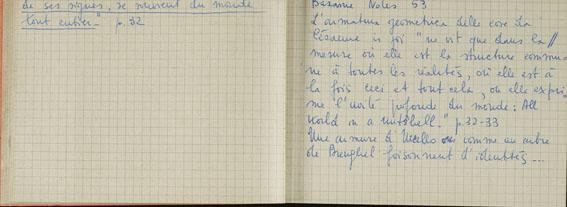 de ses signes, se nourent du monde
tout entier." p. 32
Bazaine Notes 53
L'armatura geometrica delle cose da
Cézanne in poi "ne vit que dans la
mesure où elle est la structure commu-
ne à toutes les réalités, où elle est à
la fois ceci et tout cela, où elle expri-
me l'unité profonde du monde: All
world in a nutshell." p. 32-33
Une armure d'Uccello ou comme un arbre
de Breughel foisonnent d'identités...